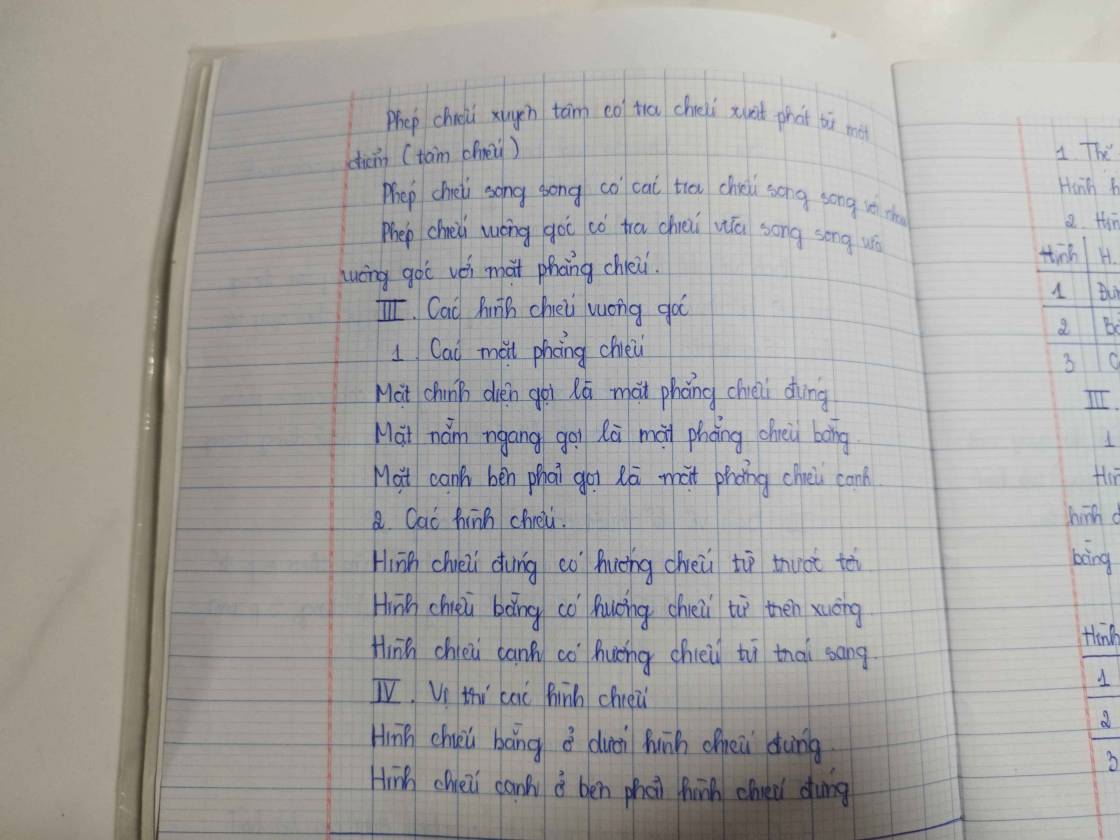 Phép chiếu xuyên tâm có tia chiếu xuất phát từ một
điểm (tâm chiếu)
Phép chiếu song song có các tia chiếu song song với nhau
Phép chiếu vuông góc có tia chiếu vừa song song vừa
vuông góc với mặt phẳng chiếu.
III. Các hình chiếu vuông góc
1. Các mặt phẳng chiếu
Mặt chính diện gọi là mặt phẳng chiếu đứng
Mặt nằm ngang gọi là mặt phẳng chiếu bằng
Mặt cạnh bên phải gọi là mặt phẳng chiếu cạnh
2. Các hình chiếu.
Hình chiếu đứng có hướng chiếu từ trước tới
Hình chiếu bằng có hướng chiếu từ trên xuống
Hình chiếu cạnh có hướng chiếu từ trái sang.
IV. Vị trí các hình chiếu
Hình chiếu bằng ở dưới hình chiếu đứng.
Hình chiếu cạnh ở bên phải hình chiếu đứng
1. Thế
Hình
2. Hìn
Hình H.
1
2
3
III
1
Hìn
hình
bằng
Hình
1
2
3